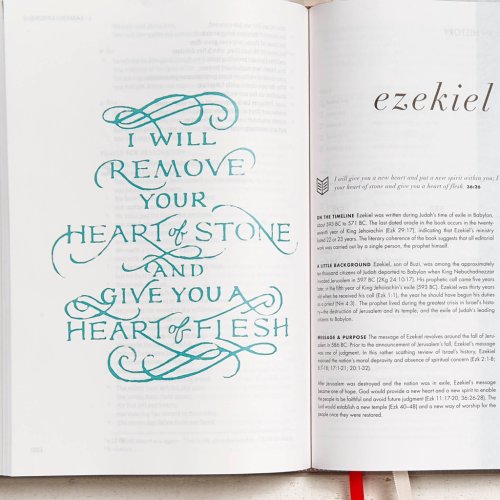 I WILL
REMOVE
YOUR
HEART of STONE
AND
GIVE YOU A
HEART of FLESH
HISTORY
ezekiel
I will give you a new heart and put a new spirit within you; I
your heart of stone and give you a heart of flesh. 36:26
ON THE TIMELINE Ezekiel was written during Judah's time of exile in Babylon,
about 593 BC to 571 BC. The last dated oracle in the book occurs in the twenty-
seventh year of King Jehoiachin (Ezk 29:17), indicating that Ezekiel's ministry
lasted 22 or 23 years. The literary coherence of the book suggests that all editorial
work was carried out by a single person, the prophet himself.
A LITTLE BACKGROUND Ezekiel, son of Buzi, was among the approximately
ten thousand citizens of Judah deported to Babylon when King Nebuchadnezzar
invaded Jerusalem in 597 BC (2Kg 24:10-17). His prophetic call came five years
later, in the fifth year of King Jehoiachin's exile (593 BC). Ezekiel was thirty years
old when he received his call (Ezk 1:1), the year he should have begun his duties
as a priest (Nm 4:3). The prophet lived during the greatest crisis in Israel's histo-
ry—the destruction of Jerusalem and its temple, and the exile of Judah's leading
citizens to Babylon.
MESSAGE & PURPOSE The message of Ezekiel revolves around the fall of Jeru-
salem in 586 BC. Prior to the announcement of Jerusalem's fall, Ezekiel's message
was one of judgment. In this rather scathing review of Israel's history, Ezekiel
exposed the nation's moral depravity and absence of spiritual concern (Ezk 2:1-8;
8:7-18; 17:1-21; 20:1-32).
After Jerusalem was destroyed and the nation was in exile, Ezekiel's message
became one of hope. God would provide a new heart and a new spirit to enable
the people to be faithful and avoid future judgment (Ezk 11:17-20, 36:26-28). The
Lord would establish a new temple (Ezk 40–48) and a new way of worship for the
people once they were restored.